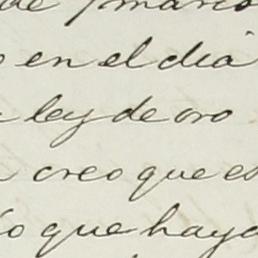 de
o en el dia
ley de oro
creo que es
io que haya